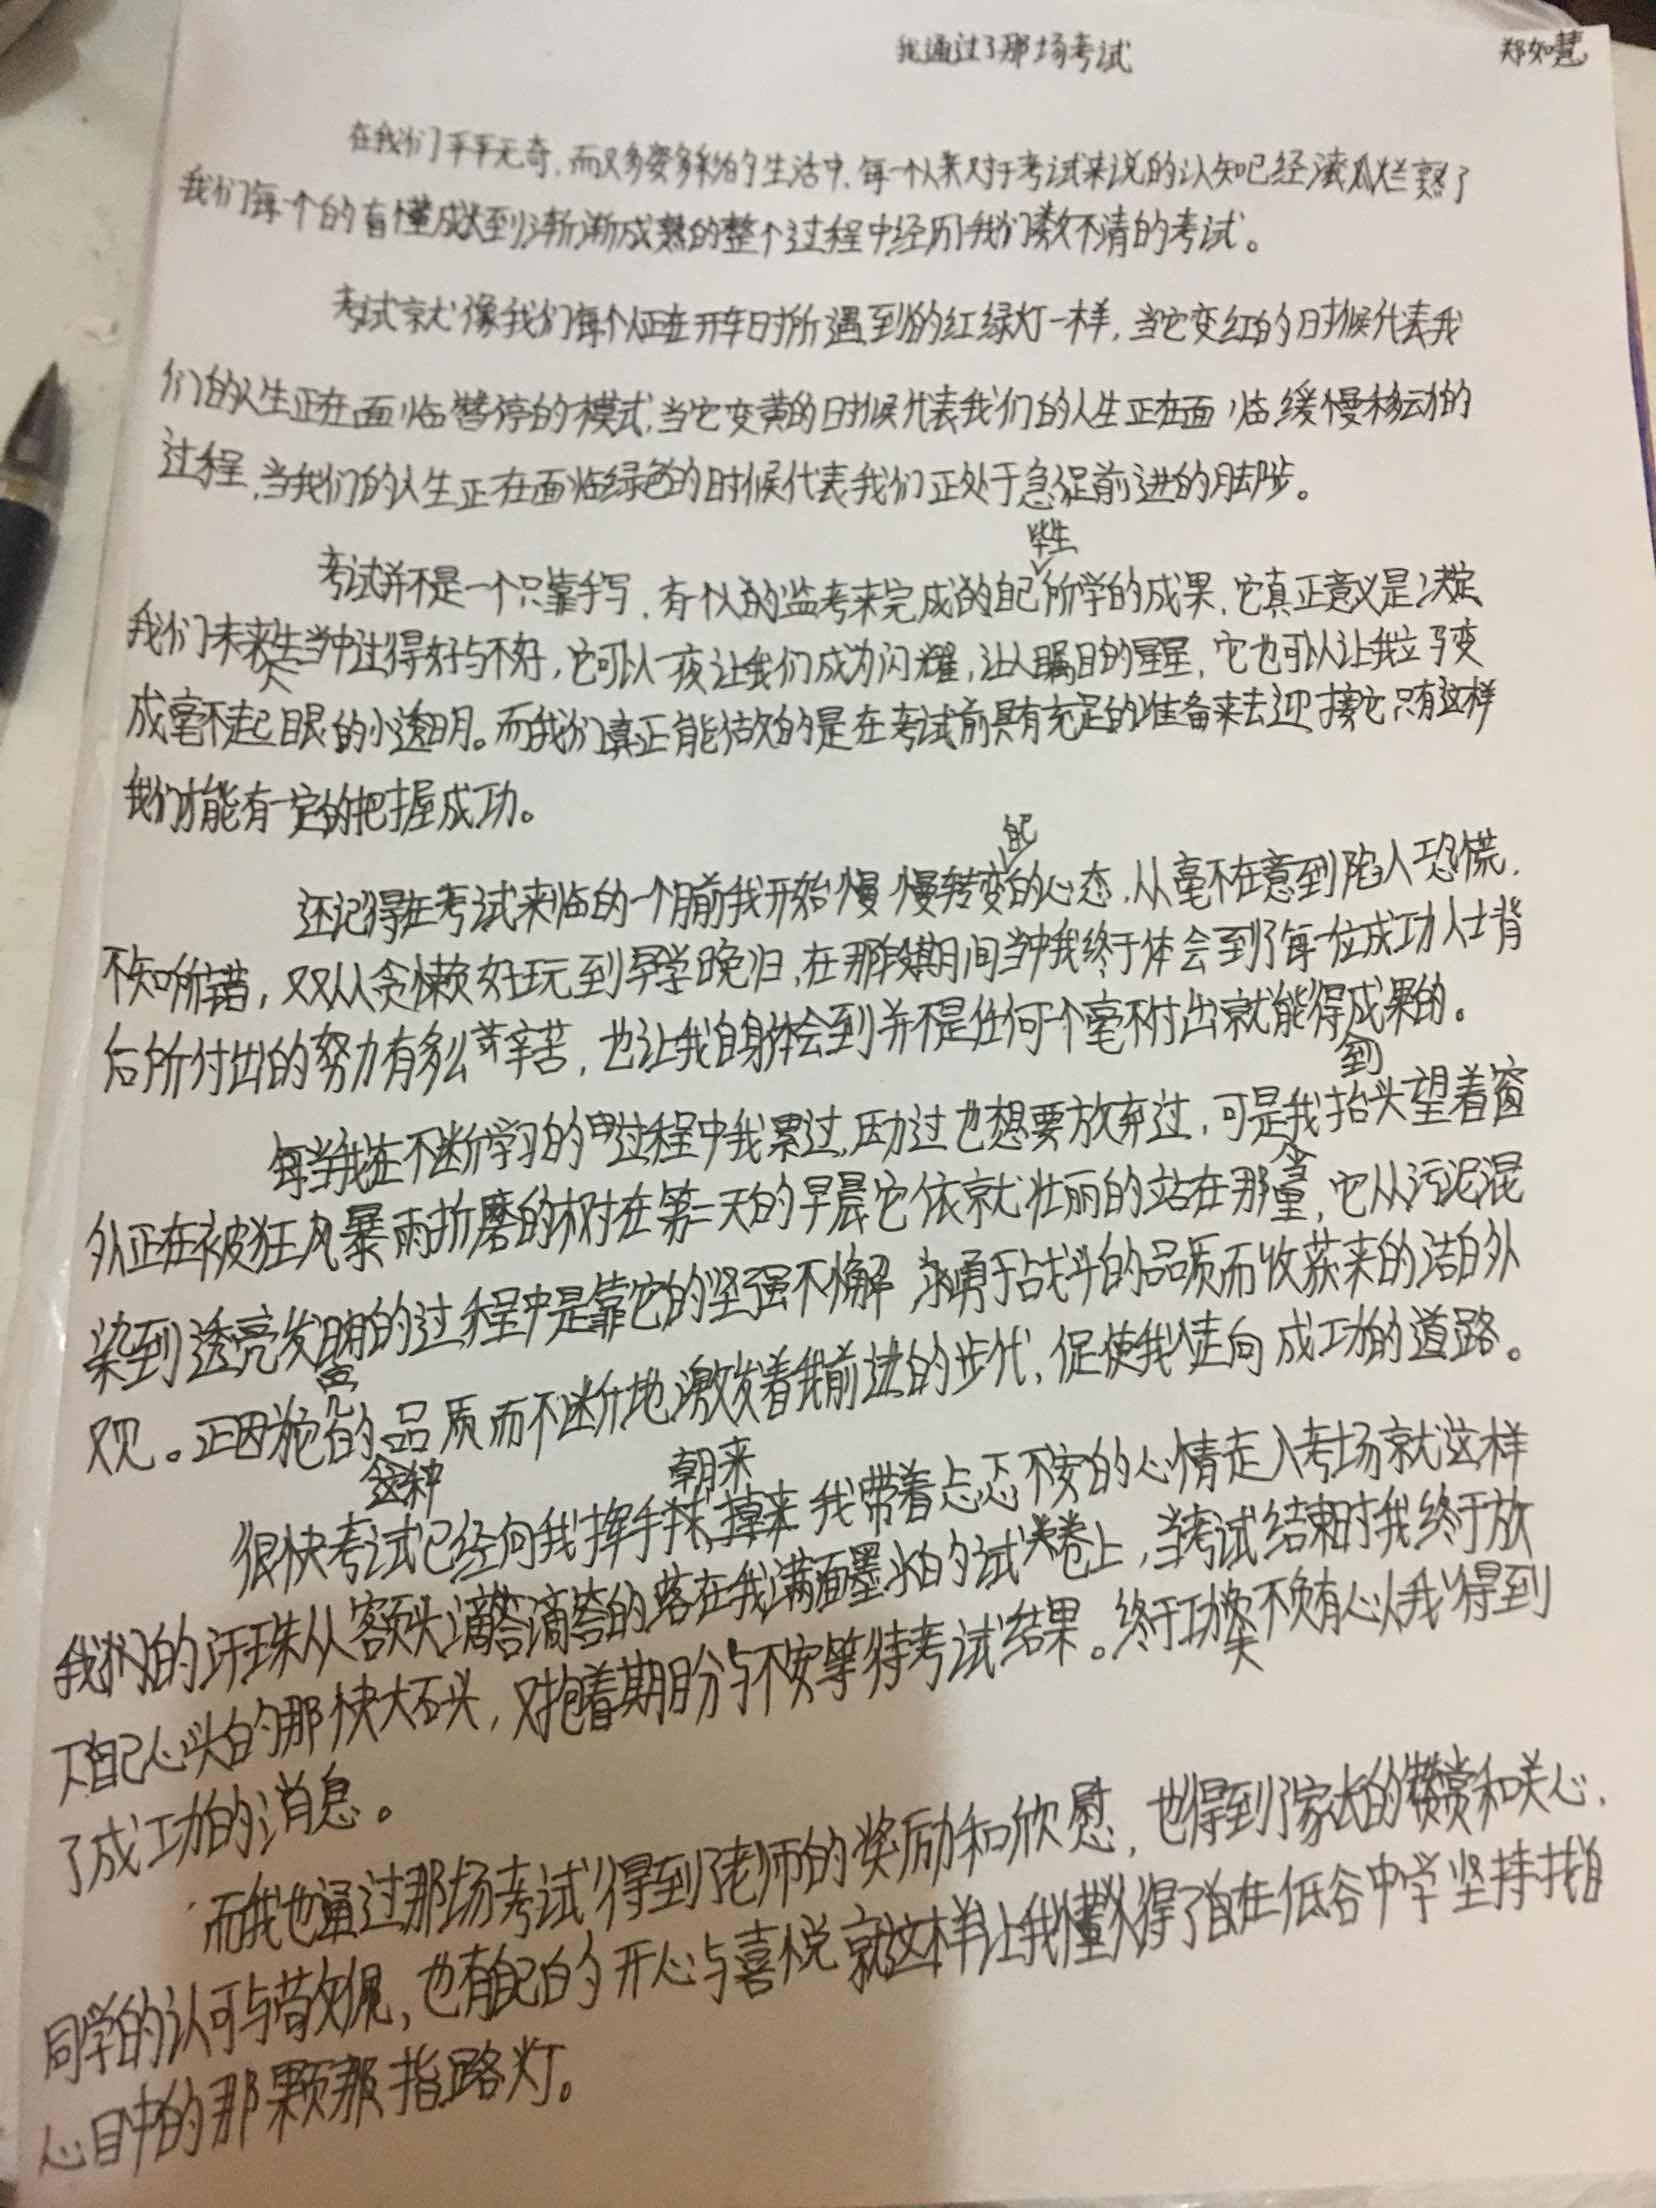 我通过了那场考试
郑如慧
在我们平平无奇，而又多姿多彩的生活中，每一个人来对于考试来说的认知已经滚瓜烂熟了
我们每一个的有懂成长到渐渐成熟的整个过程中经历我们数不清的考试。
考试就像我们每个人正在开车时所遇到的红绿灯一样，当它变红的时候代表我
们的人生正在面临暂停的模式，当它变黄的时候代表我们的人生正在面临缓慢移动的
过程，当我们的人生正在面临绿色的时候代表我们正处于急促前进的脚步。
考试并不是一个只靠手写，有个人的监考来完成的自己毕生所学的成果，它真正意义是决定
我们未来人生当中过得好与不好，它可以一夜让我们成为闪耀，让人瞩目的星星，它也可以让我立马变
成毫不起眼的小透明。而我们真正能做的是在考试前具有充足的准备来去迎接它只有这样
我们才能有一定的把握成功。
还记得在考试来临的一个月前我开始慢慢转变自己的心态，从毫不在意到陷入恐慌，
不知所措，又从贪懒好玩到早学晚归，在那段期间当中我终于体会到了每一位成功人士背
后所付出的努力有多么辛苦，也让我自身体会到并不是任何一个毫不付出就能得到成果的。
每当我在不断学习的过程中我累过，困过也想要放弃过，可是我抬头望着窗
外正在被狂风暴雨折磨的树在第二天的早晨它依就壮丽的站在那里，它从污泥混
染到透亮发亮的过程中是靠它的坚强不懈 勇于战斗的品质而收获来的洁白外
观。正因为它这种的品质而不断地激发着我前进的步伐，促使我走向成功的道路。
很快考试已经向我挥手朝来 我带着忐忑不安的心情走入考场就这样
我的汗珠从额头滴答滴答的落在我满面墨水的试卷上，当考试结束时我终于放
下自己心头的那快大石头，又抱着期盼与不安等待考试结果。终于功夫不负有心人我得到
了成功的消息。
而我也通过那场考试得到了老师的奖励和欣慰，也得到了家长的赞赏和关心，
同学的认可与敬佩，也有自己的开心与喜悦就这样让我懂得了自在低谷中学坚持找自
心目中的那颗指路灯。